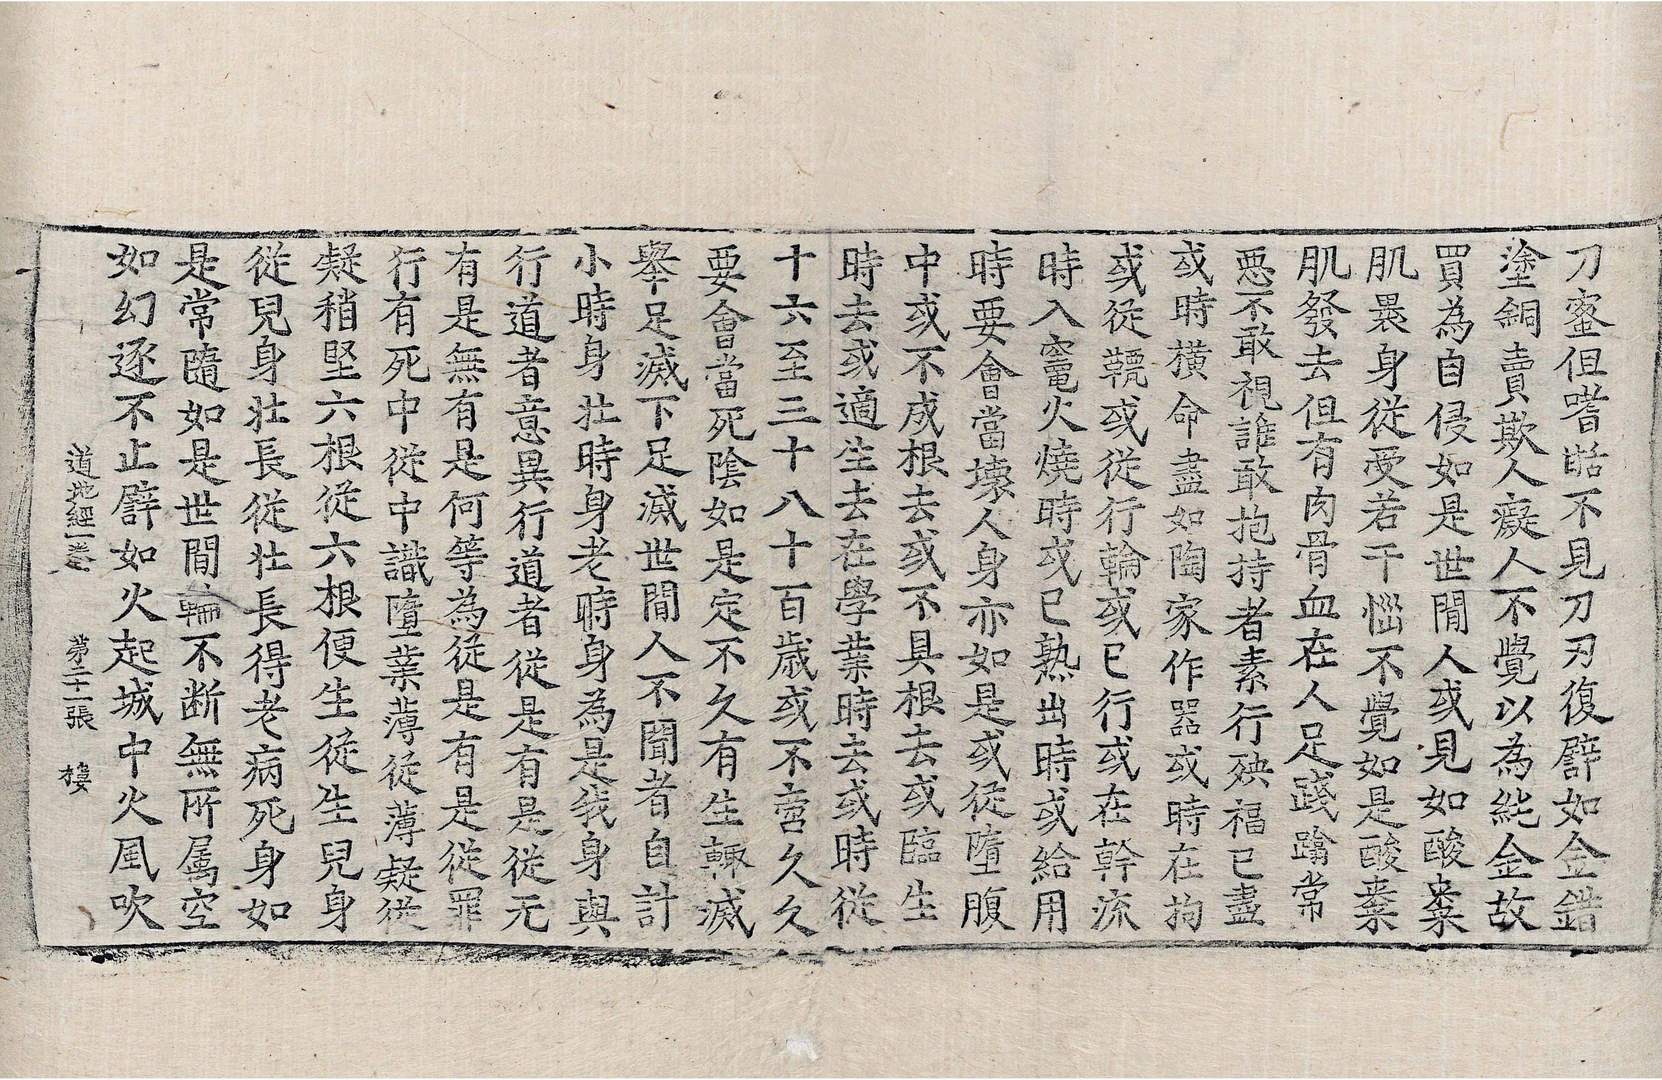 刀蜜但嗜䑛不見刀刃復譬如金錯
塗銅賣欺人癡人不覺以為純金故
買為自侵如是世間人或見如酸棗
肌裹身從受若干惱不覺如是酸棗
肌發去但有肉骨血在人足踐蹹常
惡不敢視誰敢抱持者素行殃福已盡
或時橫命盡如陶家作器或時在拘
或從㼷或從行輪或已行或在幹流
時入竈火燒時或已熟出時或給用
時要會當壞人身亦如是或從墮腹
中或不成根去或不具根去或臨生
時去或適生去在學業時去或時從
十六至三十八十百歲或不啻久久
要會當死陰如是定不久有生輒滅
擧足滅下足滅世間人不聞者自計
小時身壯時身老時身為是我身與
行道者意異行道者從是有是從无
有是無有是何等為從是有是從罪
行有死中從中識墮業薄從薄凝從
凝稍堅六根從六根便生從生兒身
從兒身壯長從壯長得老病死身如
是常隨如是世間輪不斷無所属空
如幻逐不止譬如火起城中火風吹
道地經一卷　第二十一張　樓